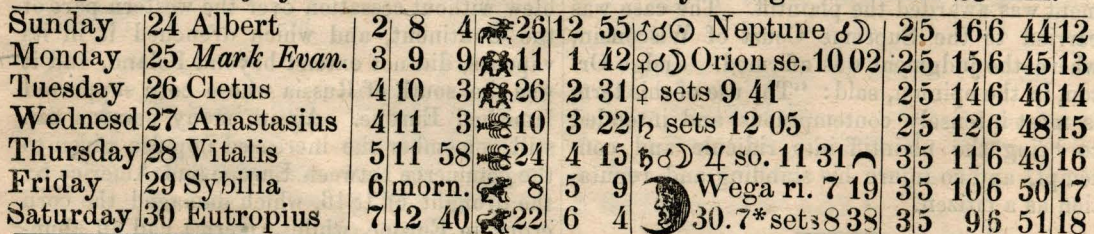 Sunday 24 Albert 2 8 4 26 12 55 ♂☌☉ Neptune ☌☽ 2 5 16 6 44 12
Monday 25 Mark Evan. 3 9 9 11 1 42 ♀☌☽ Orion se. 10 02 2 5 15 6 45 13
Tuesday 26 Cletus 4 10 3 26 2 31 ♀ sets 9 41 2 5 14 6 46 14
Wednesd 27 Anastasius 4 11 3 10 3 22 ♄ sets 12 05 2 5 12 6 48 15
Thursday 28 Vitalis 5 11 58 24 4 15 ♄☌☽ ♃ so. 11 31 3 5 11 6 49 16
Friday 29 Sybilla 6 morn. 8 5 9 Wega ri. 7 19 3 5 10 6 50 17
Saturday 30 Eutropius 7 12 40 22 6 4 30. 7* sets 8 38 3 5 9 6 51 18